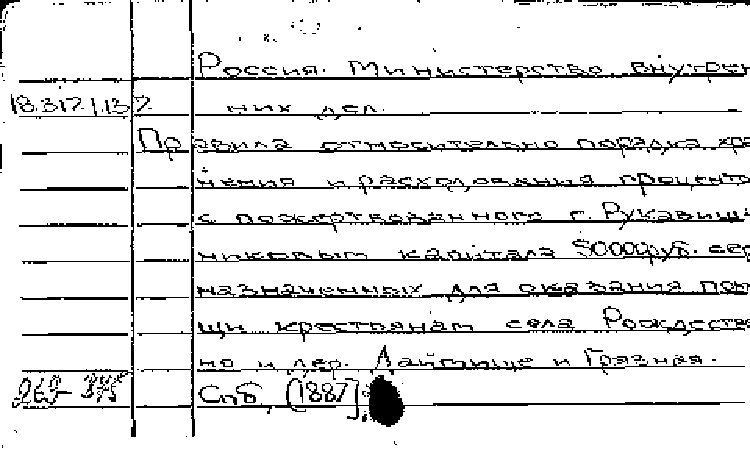 Россия. Министерство внутрен
18.317.1.137 них дел.
Правила относительно порядка хра
нения и расходования проценто
с пожертвованного г. Рукавиш
никовым капитала 50000 руб. сер
назначенных для оказания пом
щи крестьянам села Рождестве
но и дер. Даймище и Грязная.
269-375 Спб, [1887].